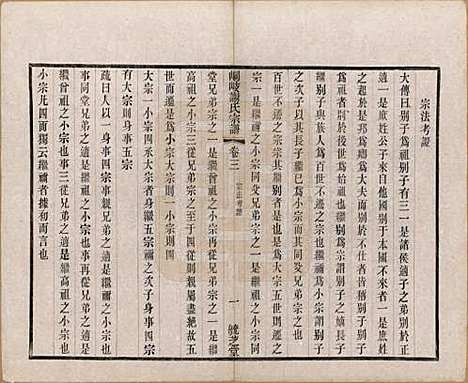 宗法考證
大傳曰別子為祖別子有三一是諸侯適子之弟別於
正適二是庶姓公子來自他國別於本國不來者三是庶姓
起於是邦為卿大夫而別於不仕者皆稱別子也
為祖者別與後世為始祖也繼別為宗謂別子之嫡長子繼
別子與族人為百世不遷之大宗也繼禰者為小宗謂別子
之次子以其長子繼己為小宗而其同父兄弟宗之也
百世不遷之宗是宗其繼別者是也是為大宗五世則遷之
宗一是繼禰之小宗同父兄弟宗之二是繼祖之小宗同
峒岐謝氏宗譜 卷三 宗法考證 一
堂兄弟宗之三是繼曾祖之小宗再從兄弟宗之四是繼
高祖之小宗三從兄弟宗之至於四從則親屬盡絕故五
世而遷是為小宗大宗一小宗則四
大宗一小宗四承大宗者身繼五宗之次子身事四宗
有大宗則身事五宗
疏曰人以一身事四宗事親兄弟之適是繼禰之小宗也
事同堂兄弟之適是繼祖之小宗也事再從兄弟之適是
繼曾祖之小宗也事三從兄弟之適是繼高祖之小宗也
小宗凡四而獨云繼禰者據初而言也